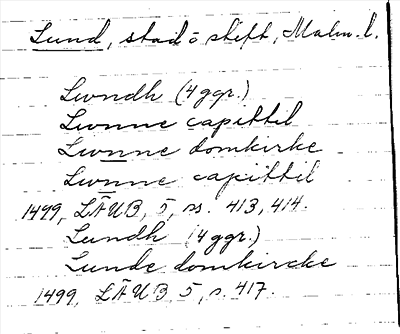 Lund, stad o stift, Malm. l.
Lwndh (4 ggr.)
Lwnne capittil
Lwnne domkirke
Lwnne capittil
1499, LÄUB, 5, ns. 413, 414.
Lundh (4 ggr.)
Lunde domkircke
1499, LÄUB 5, n. 417.